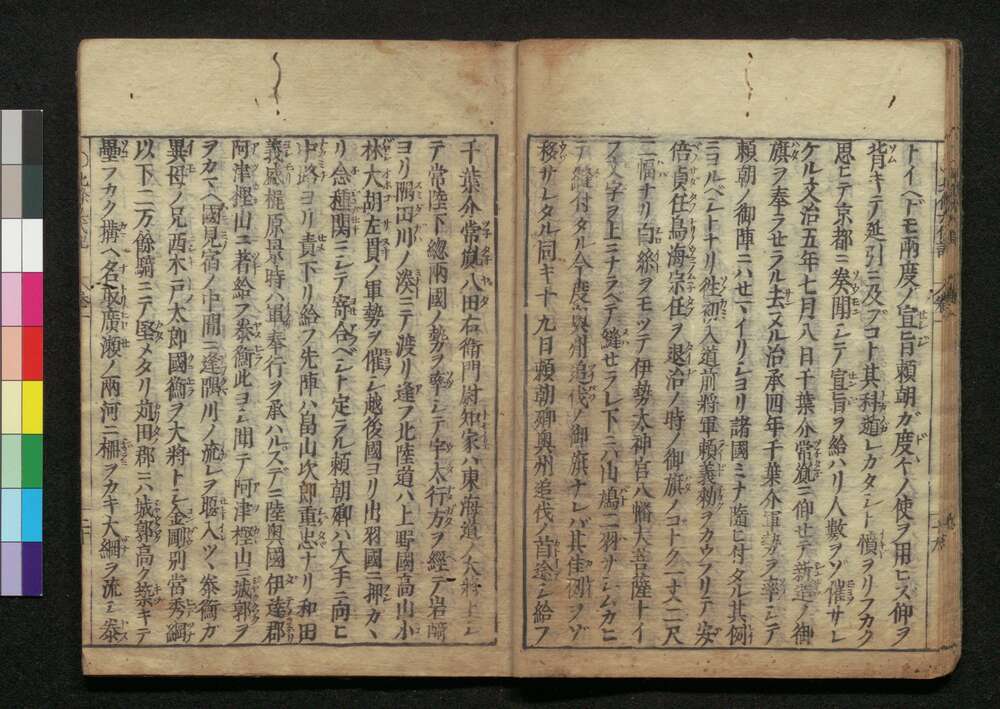 トイヘドモ兩度ノ宣旨頼朝ガ度々ノ使ヲ用ヒズ仰ヲ
背キテ延引ニ及ブコト其科遁レカタシト憤ヲリフカク
思ヒテ京都ニ奏聞シテ宣旨ヲ給ハリ人數ヲゾ催サレ
ケル文治五年七月八日千葉介常胤ニ仰セテ新造ノ御
旗ヲ奉ラせラル去ヌル治承四年千葉介軍勢ヲ率シテ
頼朝ノ御陣ニハせマイリシヨリ諸國ミナ隨ヒ付タル其例
ニヨルベシトナリ徃初入道前將軍頼義勅ヲカウフリテ安
倍貞任鳥海宗任ヲ退治ノ時ノ御旗ノコトク一丈二尺
二幅ナリ白絲ヲモツテ伊勢太神宮八幡大菩薩トイ
フ文字ヲ上ニナラベテ縫せラレ下ニ六山鳩二羽サシムカヒ
テ縫付タル今度奥州追伐ノ御旗ナレバ其佳例ヲゾ
移サレタル同キ十九日頼朝卿奥州追伐ノ首途シ給フ
千葉介常胤八田右衛門尉知家ハ東海道ノ大將トシ
テ常陸下總兩國ノ勢ヲ率シテ宇太行方ヲ經テ岩﨑
ヨリ隅田川ノ湊ニテ渡リ逢フ北陸道ハ上野國高山小
林大胡左貫ノ軍勢ヲ催シ越後國ヨリ出羽國ニ押カヽ
リ念種関ニシテ寄合ベシト定ラル頼朝卿ハ大手ニ向ヒ
中路ヨリ責下リ給フ先陣ハ畠山次郎重忠ナリ和田
義盛梶原景時ハ軍奉行ヲ承ハルスデニ陸奥國伊達郡
阿津樫山ニ著給フ泰衡此ヨシ聞テ阿津樫山ニ城郭ヲ
ヲカマヘ國見宿ノ中間ニ逢隈川ノ流レヲ堰入ツヽ泰衡ガ
異母ノ兄西木戸太郎國衡ヲ大將トシ金剛別當秀綱
以下二万餘騎ニテ堅メタリ苅田郡ニハ城郭高ク築キテ
壘フカク搆ヘ名取廣瀬ノ兩河ニ柵ヲカキ大綱ヲ流シ泰